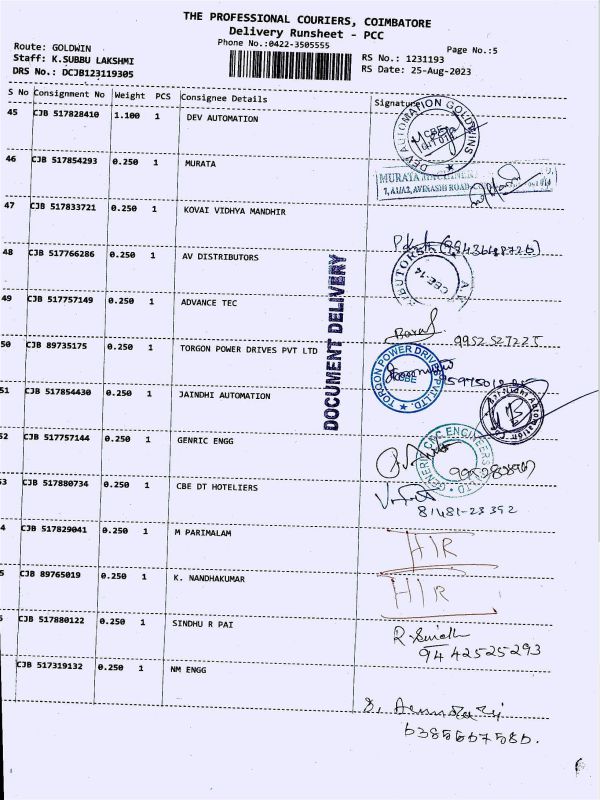 THE PROFESSIONAL COURIERS, COIMBATORE
Delivery Runsheet - PCC
Phone No.:0422-3505555
Page No.:5
Route: GOLDWIN
Staff: K.SUBBU LAKSHMI
DRS No.: DCJB123119305
RS No.: 1231193
RS Date: 25-Aug-2023
S No Consignment No Weight PCS Consignee Details Signature
45 CJB 517828410 1.100 1 DEV AUTOMATION
DEV AUTOMATION GOLDWINS
46 CJB 517854293 0.250 1 MURATA
MURATA MACHINERY
7, A1/A2, AVINASHI ROAD
47 CJB 517833721 0.250 1 KOVAI VIDHYA MANDHIR
48 CJB 517766286 0.250 1 AV DISTRIBUTORS
CBE-14
49 CJB 517757149 0.250 1 ADVANCE TEC
9952527225
DOCUMENT DELIVERY
50 CJB 89735175 0.250 1 TORGON POWER DRIVES PVT LTD
TORGON POWER DRIVES PVT. LTD.
CBE
51 CJB 517854430 0.250 1 JAINDHI AUTOMATION
52 CJB 517757144 0.250 1 GENRIC ENGG
GENERIC ENGINEERS
53 CJB 517880734 0.250 1 CBE DT HOTELIERS
81481-23392
4 CJB 517829041 0.250 1 M PARIMALAM
HIR
5 CJB 89765019 0.250 1 K. NANDHAKUMAR
HIR
CJB 517880122 0.250 1 SINDHU R PAI
R. Sindhu
9442525293
CJB 517319132 0.250 1 NM ENGG
6385667586.